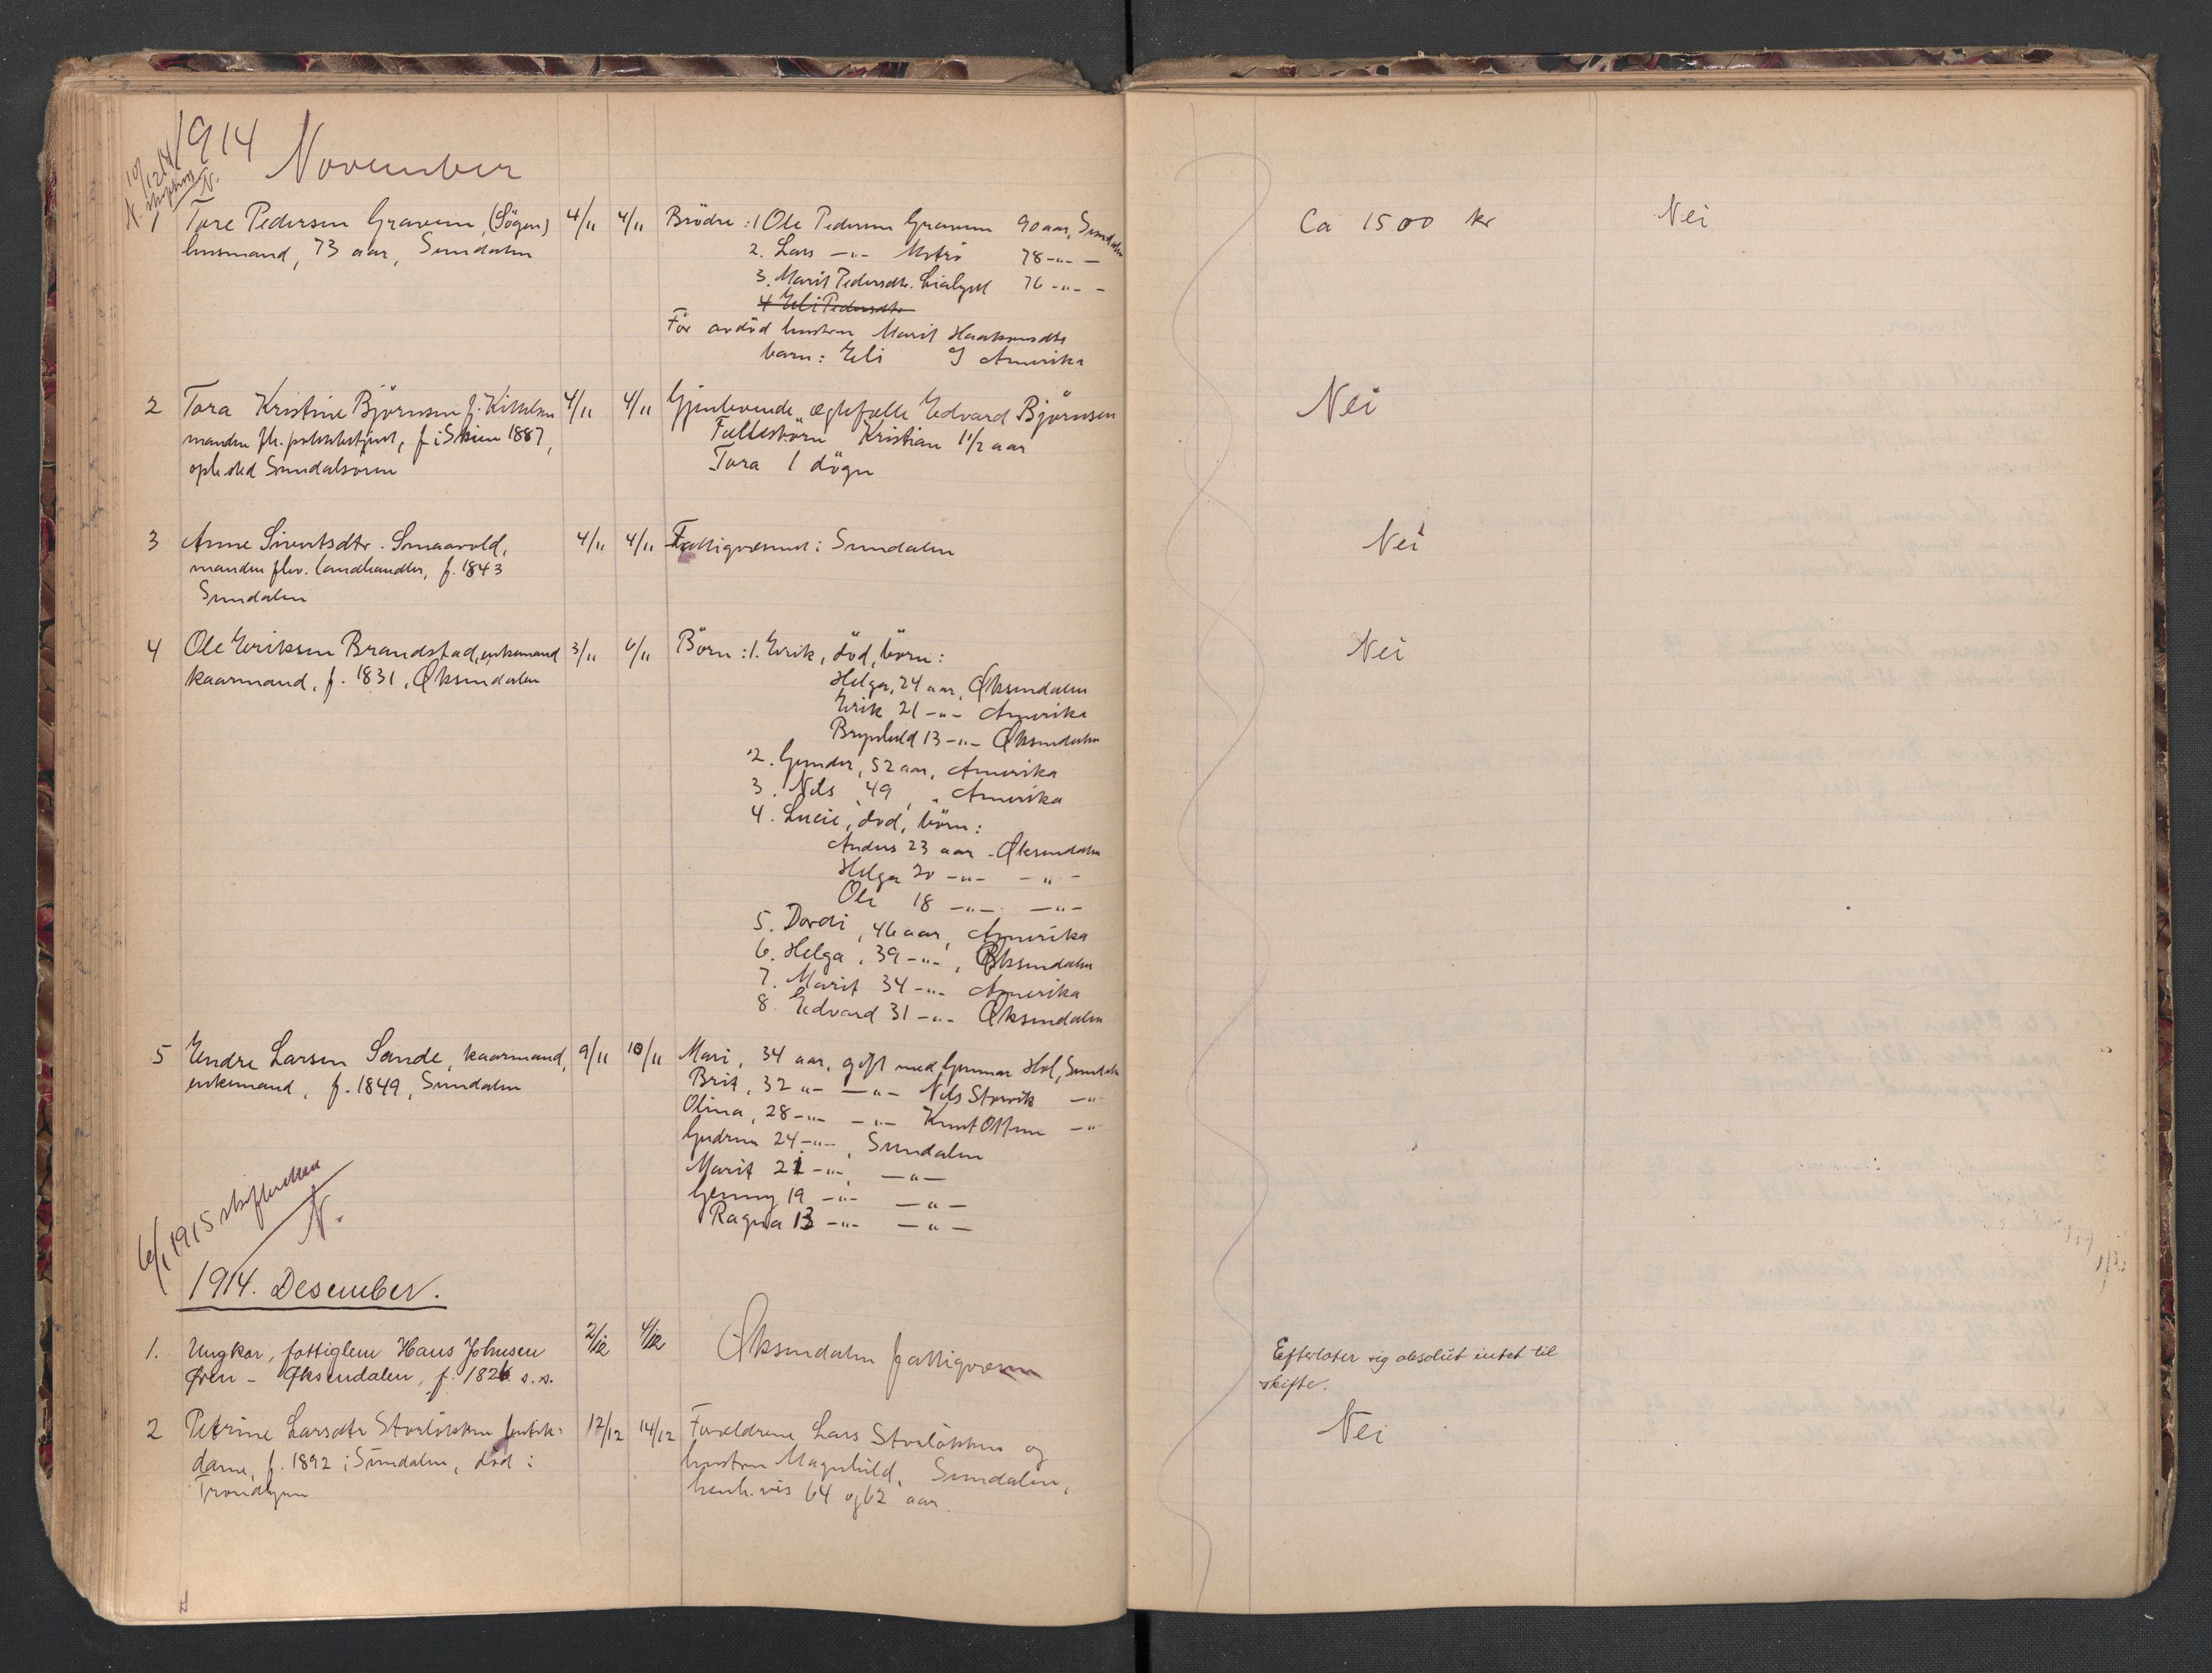 1914 November
10/12 14
N.
1 Tore Pedersen Gravem, (Sögen) 4/11 4/11 Brödre: 1 Ole Pedersen Gravem 90 aar, Sundalen Ca 1500 kr Nei
husmand, 73 aar, Sundalen 2. Lars -"- 78 -"- -
3. Marit Pedersdtr. 76 -"- -
4 Eli Pedersdtr
Før avdöd hustru Marit Haakensdtr
barn: Eli I Amerika
2 Tora Kristine Björnsen f. 4/11 4/11 Gjenlevende ægtefælle Edvard Björnsen Nei
manden fh. politibetjent, f i Skien 1887, Fællesbörn Kristian 1 1/2 aar
opholdssted Sundalsören Tora 1 dögn
3 Anne Sivertsdtr. Smaavold, 4/11 4/11 Fattigvæsenet i Sundalen Nei
manden fhv. landhandler, f. 1843
Sundalen
4 Ole Eriksen Brandstad, enkemand 3/11 6/11 Börn: 1. Erik, död, börn: Nei
kaarmand, f. 1831, Øksendalen Helga, 24 aar, Øksendalen
Erik 21 -"- Amerika
Brynhild 13 -"- Øksendalen
2. Gunder, 52 aar, Amerika
3. Nils, 49, " Amerika
4. Lucie, död, börn:
Anders 23 aar - Øksendalen
Helga 20 -"- -"-
Ole 18 -"- -"-
5. Dordi, 46 aar, Amerika
6. Helga, 39 -"-, Øksendalen
7. Marit 34 -"- Amerika
8. Edvard 31 -"- Øksendalen
5 Endre Larsen Sande, kaarmand, 9/11 10/11 Mari, 34 aar, gift med Gunnar Hol, Sundalen
enkemand, f. 1849, Sundalen Brit, 32 "- -"- Nils Storvik -"
Olina, 28 -"- -"- Knut Ottem -"
Gudrun 24 -"-, Sundalen
Marit 21 -"-, -"-
Genny 19 -"- -"-
Ragna 13 -"- -"-
6/1 1915 skifteretten
N.
1914. Desember.
1. Ungkar, fattiglem Hans Johnsen 2/12 4/12 Øksendalen fattigvæsen Efterlater sig absolut intet til
Øren - Øksendalen, f. 1826 s.s. skifte.
2 Petrine Larsdtr Storlökken butik- 12/12 14/12 Forældrene Lars Storlökken og Nei
dame, f. 1892 i Sundalen, död i hustru Magnhild, Sundalen,
Trondhjem henh.vis 64 og 62 aar.